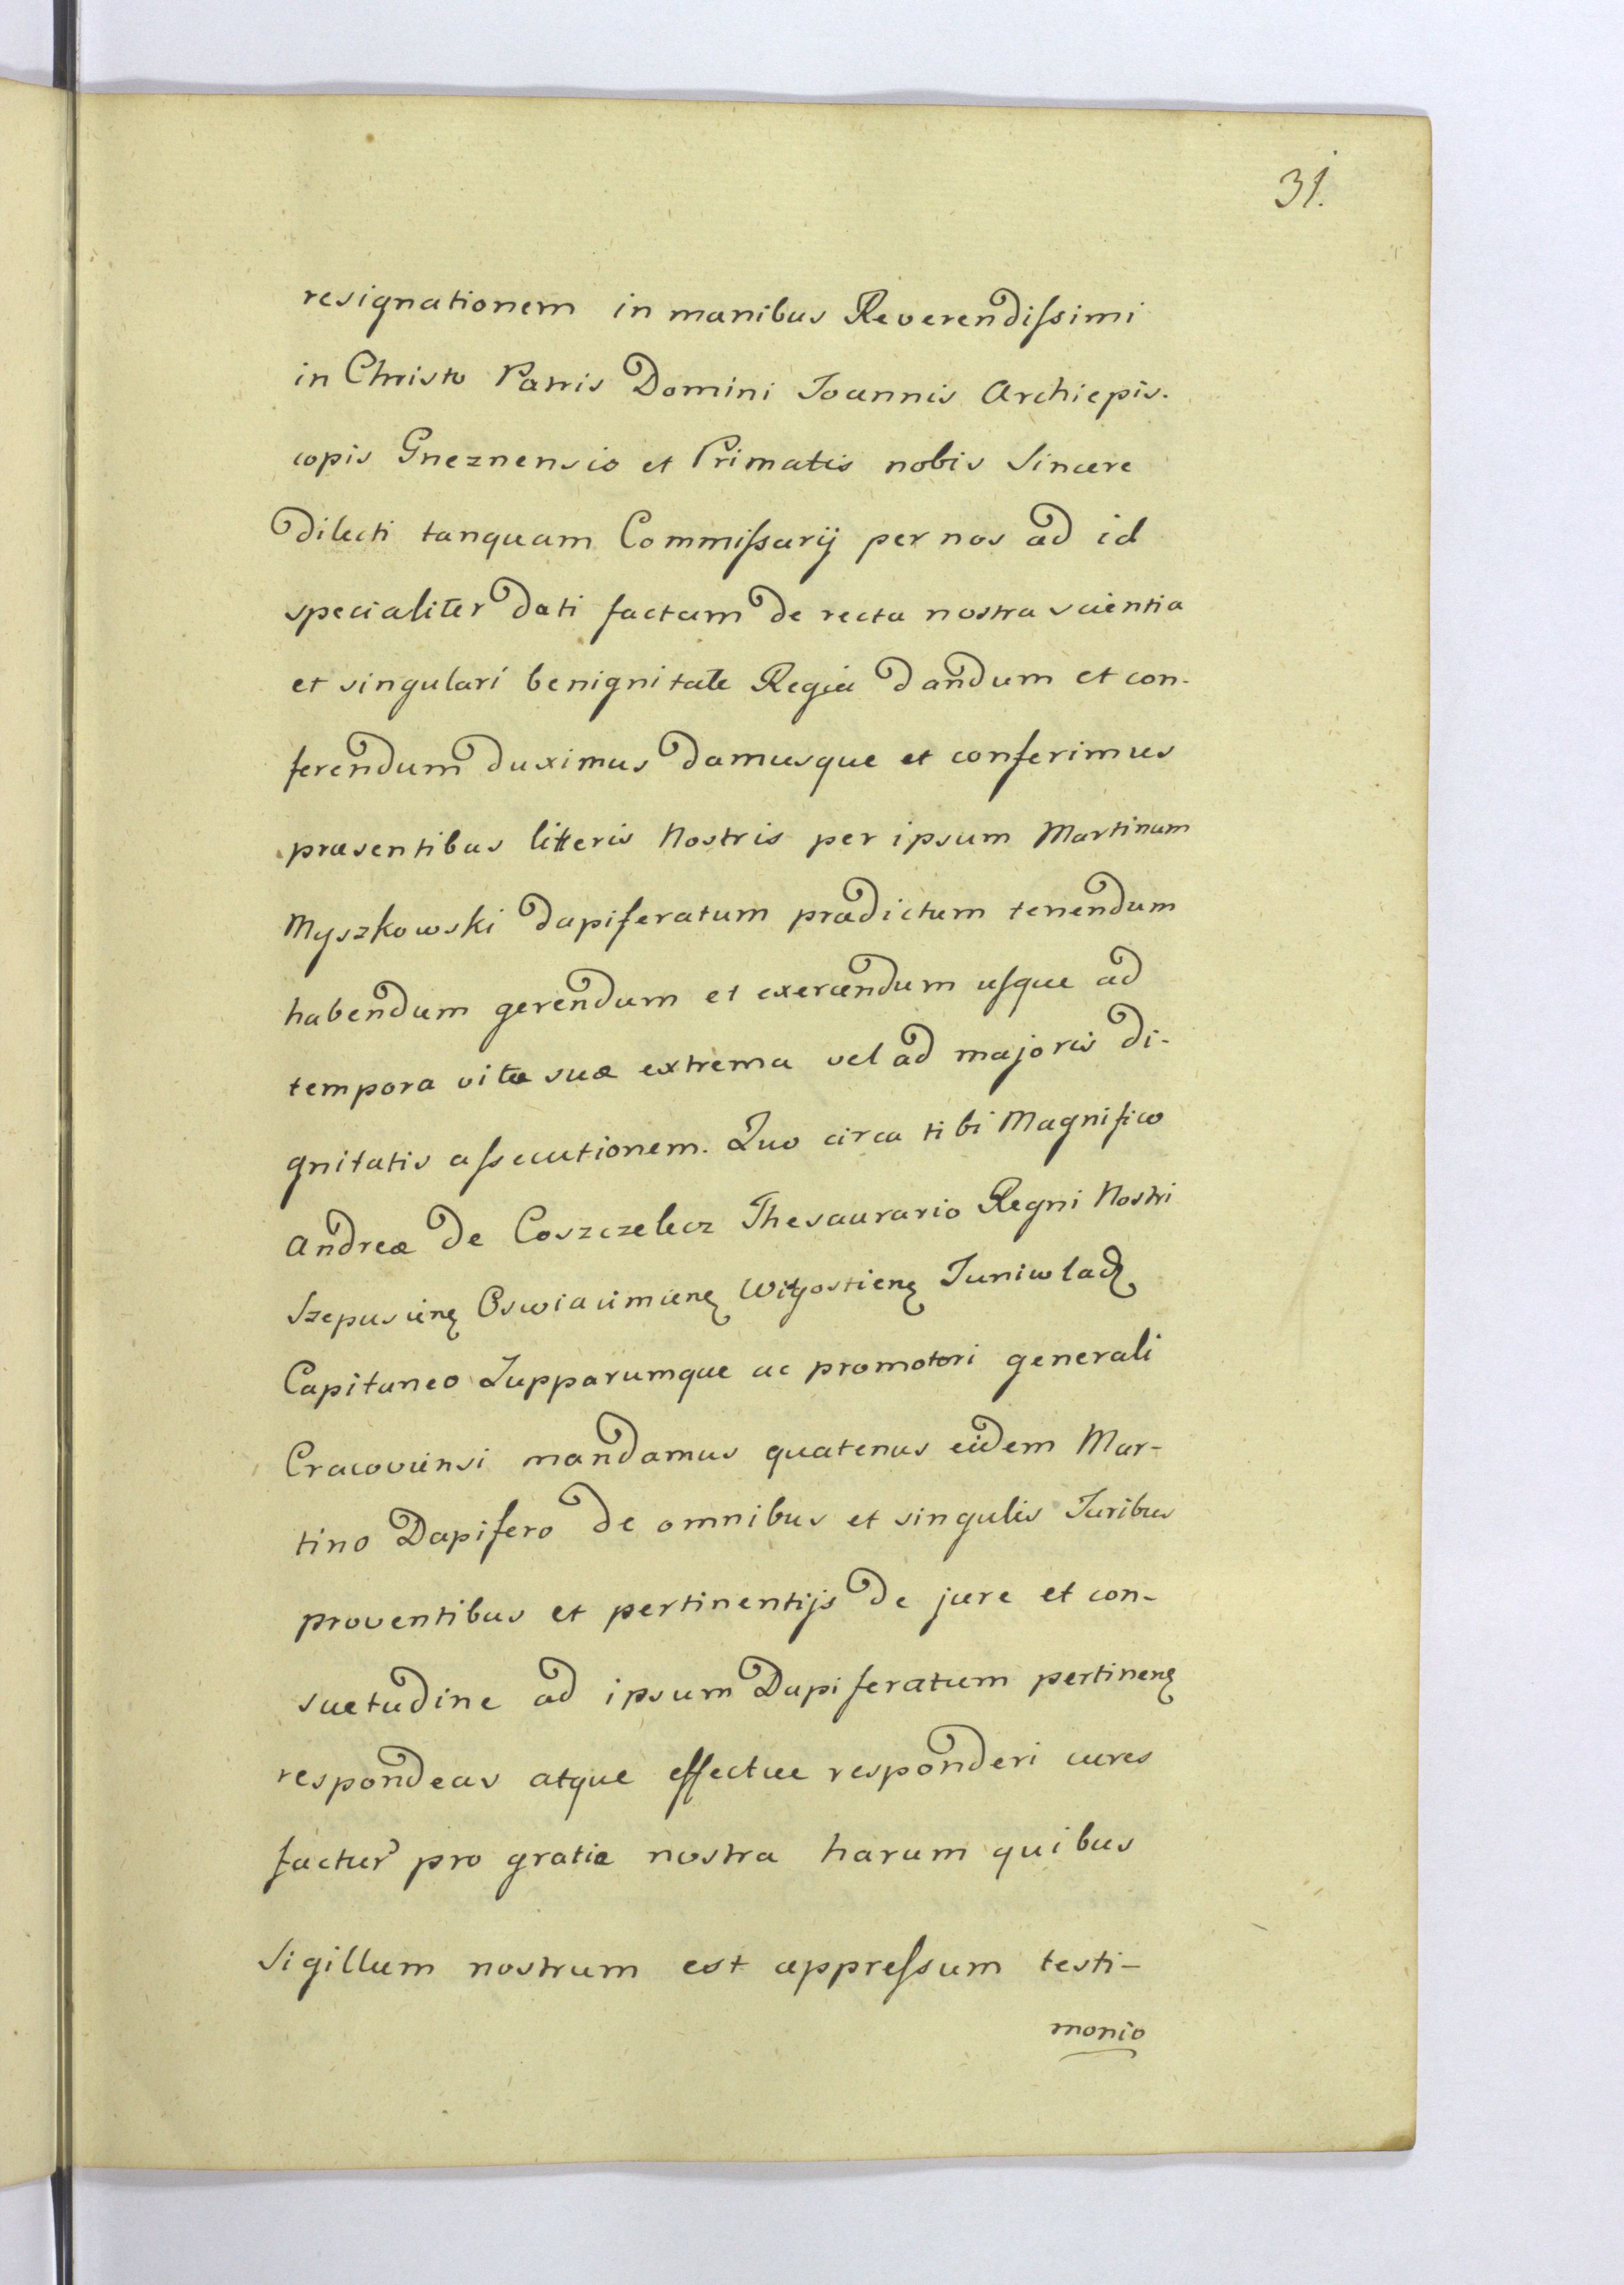 31.
resignationem in manibus Reverendiſsimi
in Christo Patris Domini Joannis Archiepis.
copis Gneznensis et Primatis nobis Sincere
dilecti tanquam Commiſsarij per nos ad id
specialiter dati factam de recta nostra scientia
et singulari benignitate Regia dandum et con-
ferendum duximus damusque et conferimus
præsentibus litteris Nostris per ipsum Martinum
Myszkowski dapiferatum prædictum tenendum
habendum gerendum et exercendum uſque ad
tempora vitæ suæ extrema vel ad majoris di-
gnitatis aſsecutionem. Quo circa tibi Magnifico
Andreæ de Coszczelecz Thesaurario Regni Nostri
Szepusienȩ Oswiacimienȩ Wißgostienȩ Juniwladȩ
Capitaneo Zupparumque ac promotori generali
Cracoviensi mandamus quatenus eidem Mar-
tino Dapifero de omnibus et singulis Juribus
proventibus et pertinentijs de jure et con-
suetudine ad ipsum Dapiferatum pertinenȩ
respondeas atque effectue responderi cures
factur' pro gratia nostra harum quibus
Sigillum nostrum est appreſsum testi-
monio